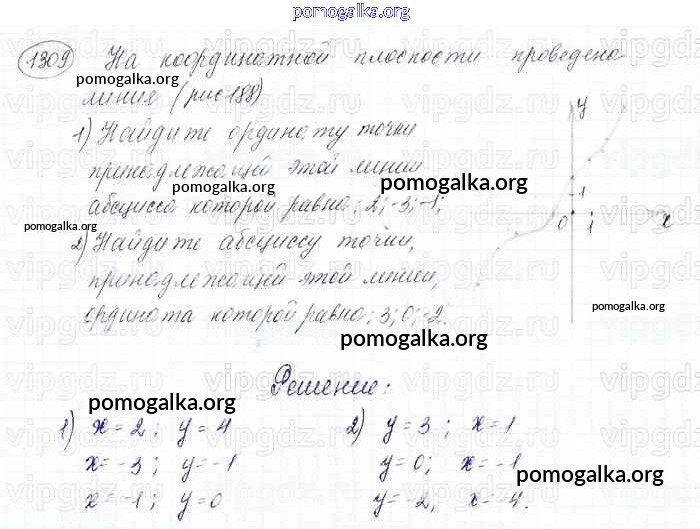 pomogalka.org
1309 На координатной плоскости проведена
pomogalka.org
линия (рис 188)
1) Найдите ординату точки
принадлежащей этой линии
pomogalka.org
pomogalka.org
абсцисса которой равна: 2; -3; -1;
pomogalka.org
2) Найдите абсциссу точки,
принадлежащей этой линии,
ордината которой равна: 3; 0; -2.
y
1
0 1 x
pomogalka.org
pomogalka.org
Решение:
pomogalka.org
1) x = 2; y = 4
x = -3; y = -1
x = -1; y = 0
2) y = 3; x = 1
y = 0; x = -1
pomogalka.org
y = -2, x = -4.
vipgdz.ru